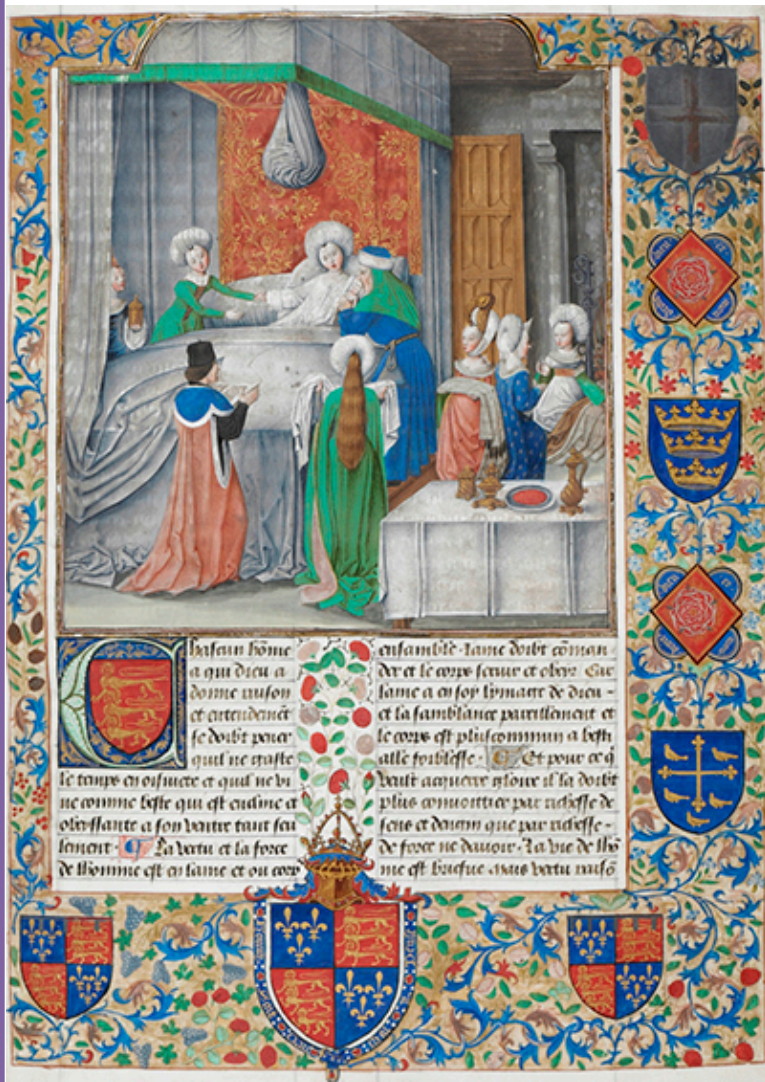 Chascun hōme
a qui dieu a
donne raison
et entendemēt
se doibt pener
quil ne gaste
le temps en oisivete et quil ne vi
ue comme beste qui est encline et
obeissante a son ventre tant seu
lement. La vertu et la force
de lhomme est en lame et ou corp
ensamble. lame doibt cōman
der et le corps servir et obeir. Car
lame a en soy lymage de dieu -
et la samblance pareillement et
le corps est plus commun a besti
alle foiblesse. Et pour ce q̄
veult acquerre gloire il la doibt
plus convoittier par richesse de
sens et dengin que par richesse -
de force ne davoir. La vie de lhō
me est briefue mais vertu raisō
dieu et
dieu et